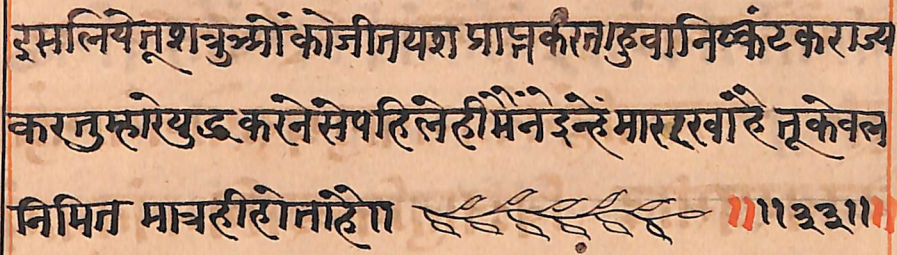 इसलिये तू शत्रुओं को जीत यश प्राप्त करता हुवा निष्कंटक राज्य
कर तुम्हारे युद्ध करने से पहिले ही मैंने इन्हें मार रखा है तू केवल
निमित मात्र ही होता है॥ ॥॥३३॥॥